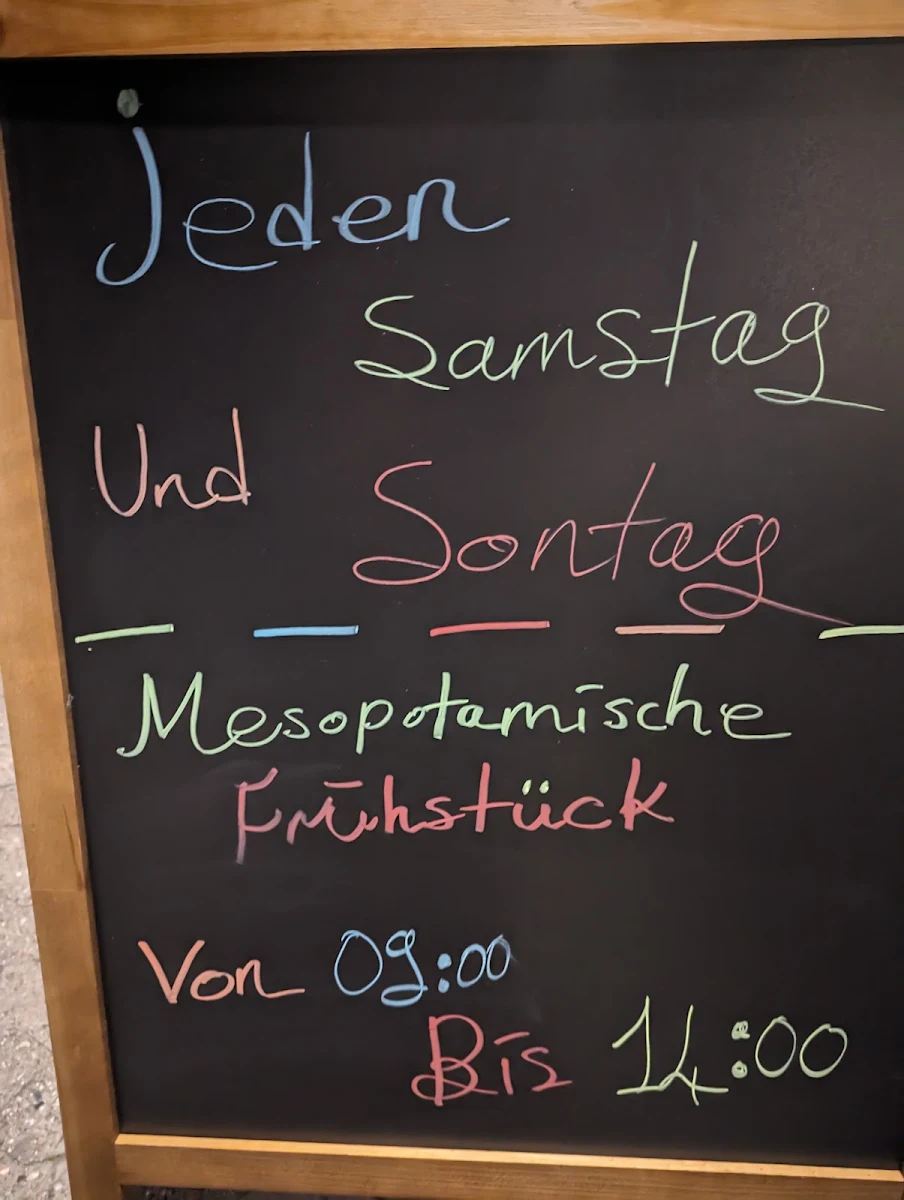 Jeden
Samstag
Und
Sontag
Mesopotamische
Frühstück
Von 09:00
Bis 14:00